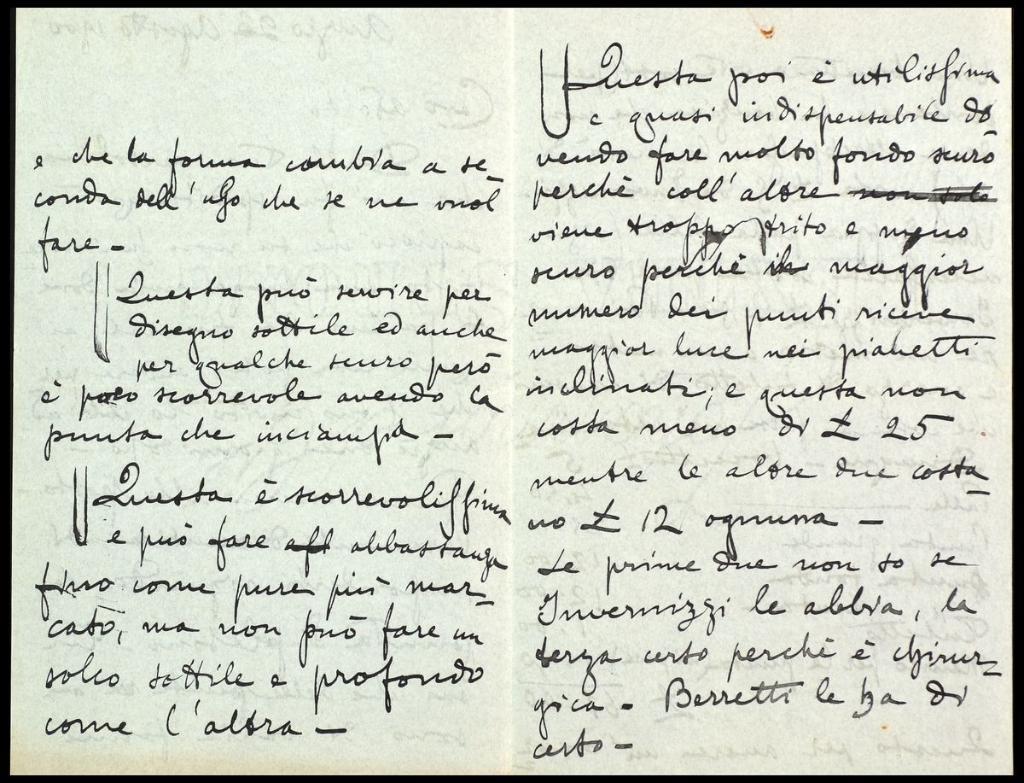 e che la forma cambia a se-
conda dell'uso che se ne vuol
fare -
Questa può servire per
disegno sottile ed anche
per qualche scuro però
è poco scorrevole avendo la
punta che inciampa -
Questa è scorrevolissima
e può fare abbastanza
fino come pure più mar-
cato, ma non può fare un
solco sottile e profondo
come l'altra -
Questa poi è utilissima
e quasi indispensabile do-
vendo fare molto fondo scuro
perchè coll'altre non solo
viene troppo trito e meno
scuro perchè il maggior
numero dei punti riceve
maggior luce nei pianetti
inclinati, e questa non
costa meno di £ 25
mentre le altre due costa-
no £ 12 ognuna -
Le prime due non so se
Invernizzi le abbia, la
terza certo perchè è chirur-
gica - Berretti le ha di
certo -